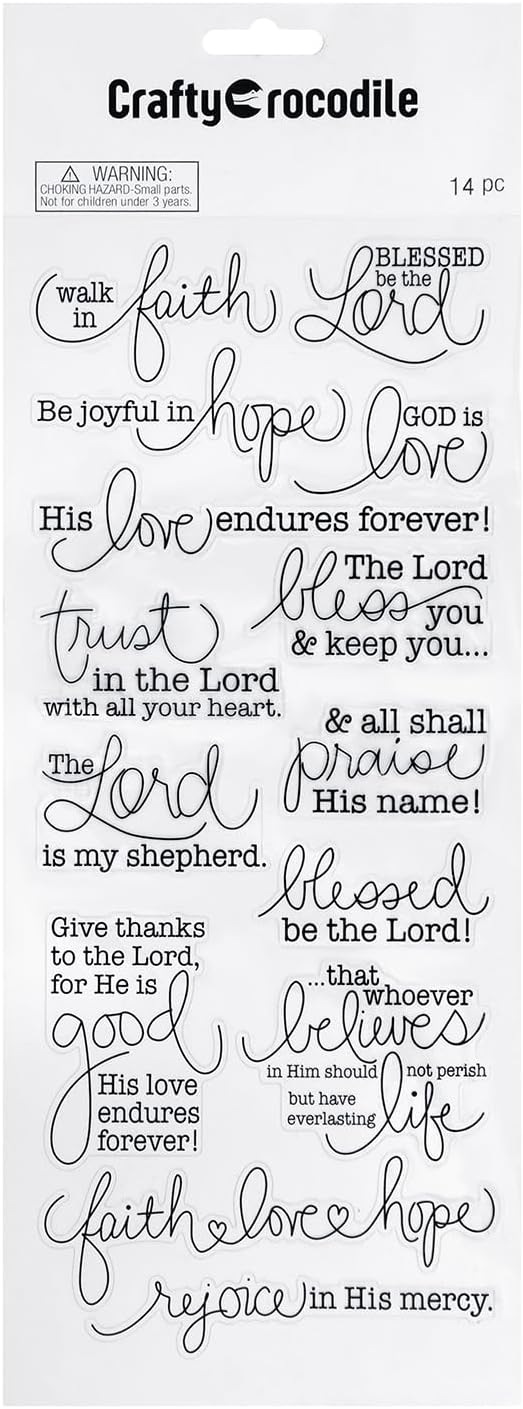 CraftyCrocodile
WARNING:
CHOKING HAZARD-Small parts.
Not for children under 3 years.
14 pc
walk
in faith
BLESSED
be the
Lord
Be joyful in hope
GOD is
love
His love endures forever!
The Lord
bless you
& keep you...
trust
in the Lord
with all your heart.
& all shall
praise
His name!
The
Lord
is my shepherd.
blessed
be the Lord!
Give thanks
to the Lord,
for He is
good
His love
endures
forever!
...that
whoever
believes
in Him should not perish
but have
everlasting life
faith love hope
rejoice in His mercy.